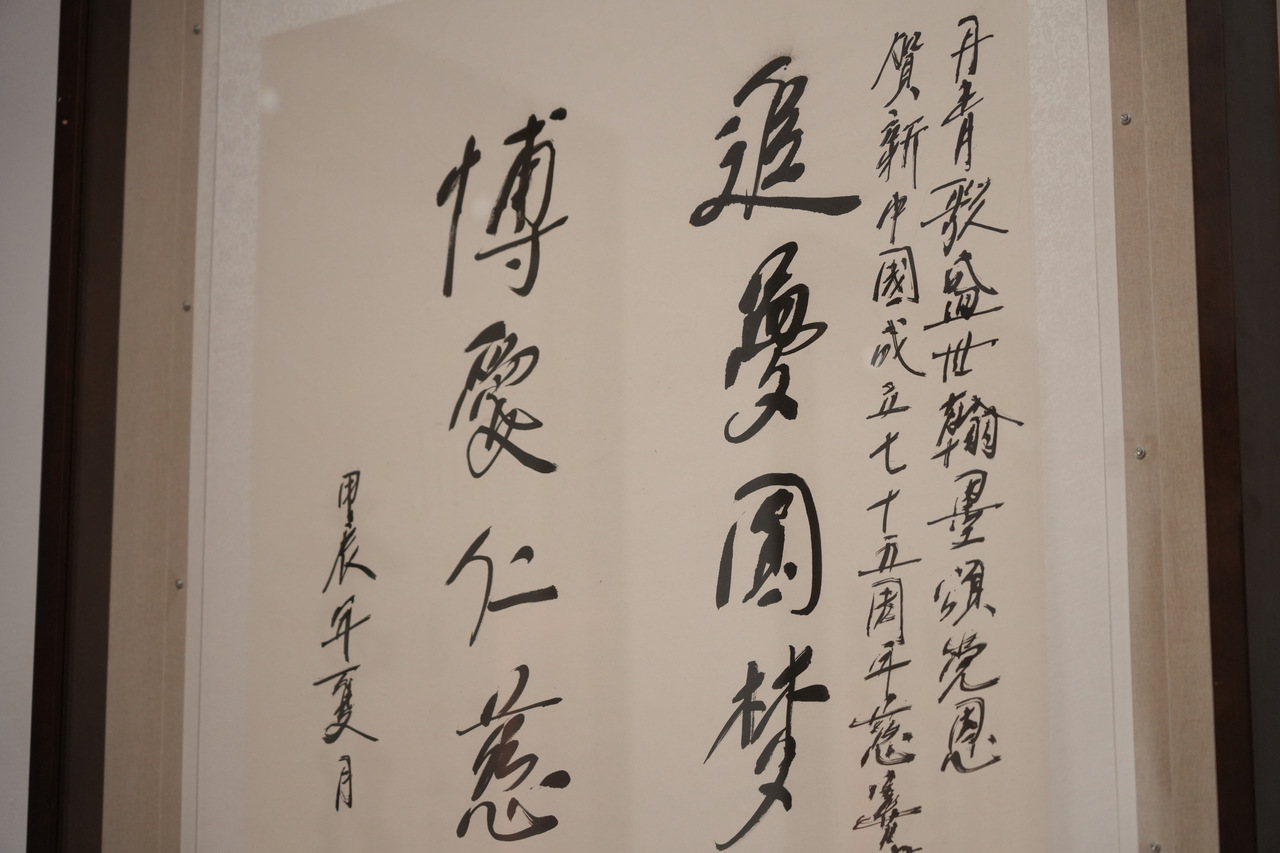 丹青歌盛世翰墨頌党恩
賀新中國成立七十五周年慈善
追夢圓梦
博愛仁慈
甲辰年夏月